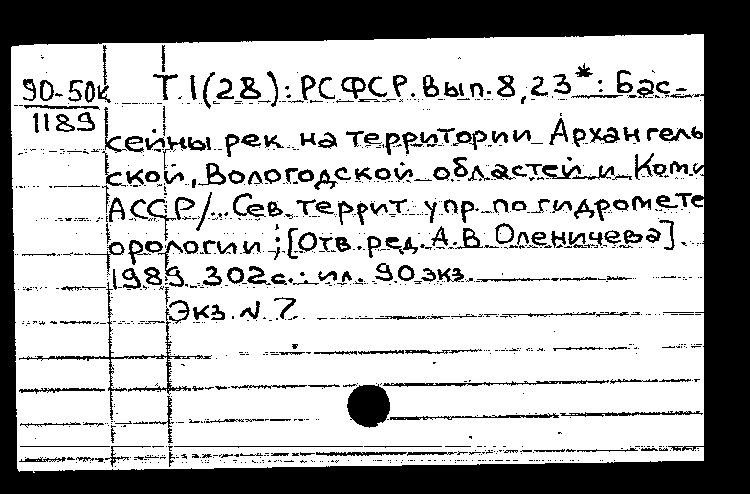 90-50к
1189
Т.1(28): РСФСР. Вып. 8, 23*: Бас-
сейны рек на территории Архангель
ской, Вологодской областей и Коми
АССР/... Сев. террит. упр. по гидромете
орологии; [Отв. ред. А. В. Оленичева].
1989. 302 с.: ил. 90 экз.
Экз. N 7